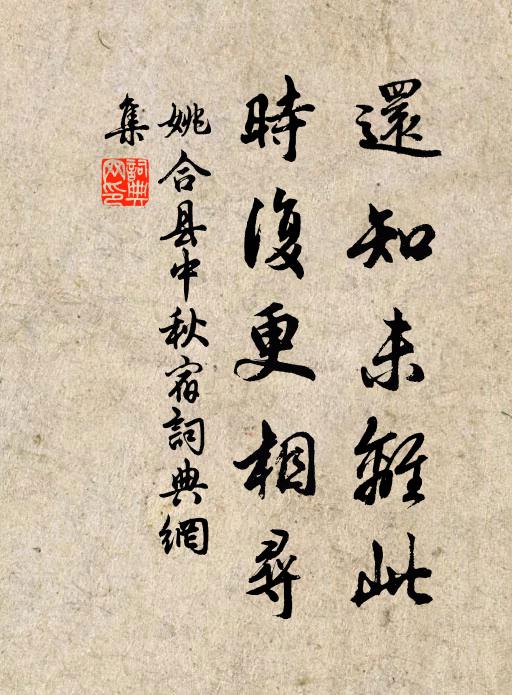 還知未離此
時復更相尋
姚合县中秋宿詞典網
集
詞典网印